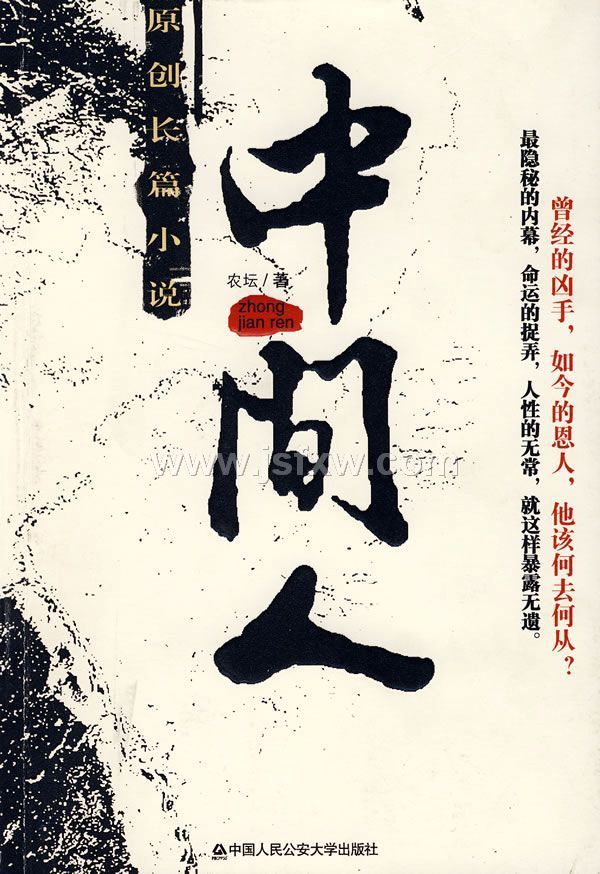 原创长篇小说
中间人
农坛/著
zhong
jian ren
曾经的凶手，如今的恩人，他该何去何从？
最隐秘的内幕，命运的捉弄，人性的无常，就这样暴露无遗。
www.jsfxw.com
中国人民公安大学出版社